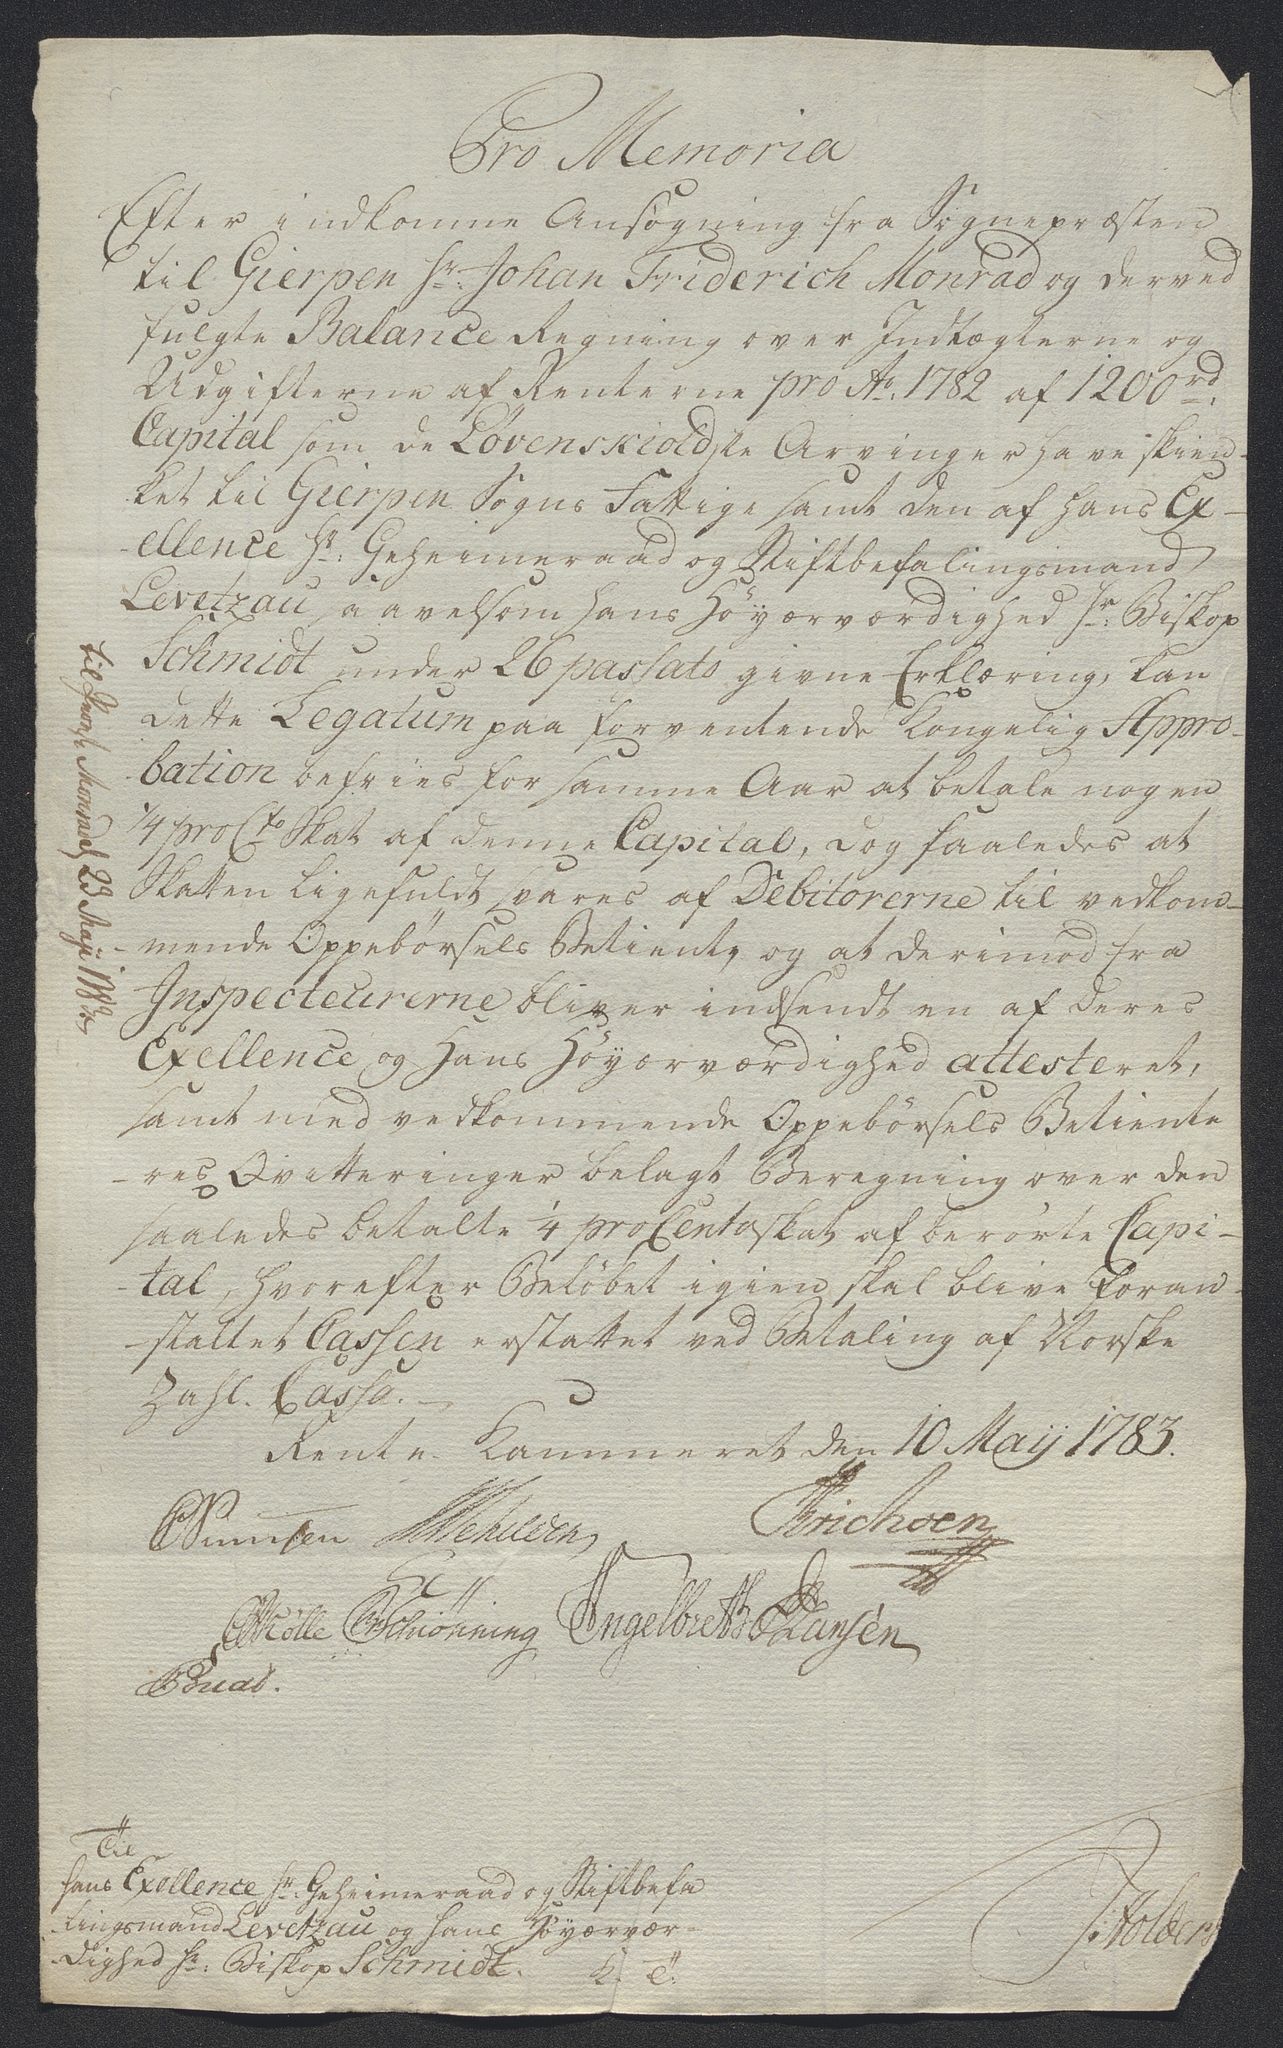 Pro Memoria
Efter indkomne Ansøgning fra Sognepræsten
til Gierpen Hr. Johan Friderich Monrad og derved
fulgte Balance Regning over Indtægterne og
Udgifterne af Renterne pro Ao. 1782 af 1200 rd.
Capital som de Løvenskioldske Arvinger have skien-
ket til Gierpen Sogns Fattige samt den af Hans Ex-
-ellence Hr. Geheimeraad og Stiftbefalingsmand
Levetzau, saavelsom Hans Höyærværdighed Hr. Biskop
Schmidt under 26 passato givne Erklæring, kan
dette Legatum paa forventende Kongelig Appro-
bation befries for samme Aar at betale nogen
1/4 pro Cto Skat af denne Capital, dog saaledes at
Skatten ligefuldt svares af Debitorerne til vedkom-
-mende Oppebörsels Betiente, og at derimod fra
Inspecteurerne bliver indsendt en af deres
Exellence og Hans Höyærværdighed attesteret,
samt med vedkommende Oppebörsels Betiente
-res Qvitteringer belagt Beregning over den
saaledes betalte 1/4 pro Cento Skat af berörte Capi-
-tal, hvorefter Belöbet igien skal blive foran-
-staltet Cassen erstattet ved Betaling af Norske
Zahl. Cassa.
Rente Kammeret den 10 Maij 1783.
Erichsen
Mölle Schiönning Engelbreth Hansén
Til
Hans Exellence Hr. Geheimeraad og Stiftbefa
lingsmand Levetzau og Hans Höyærvær-
-dighed Hr. Biskop Schmidt.
Holbers
til Monrad 23 Maji 1783